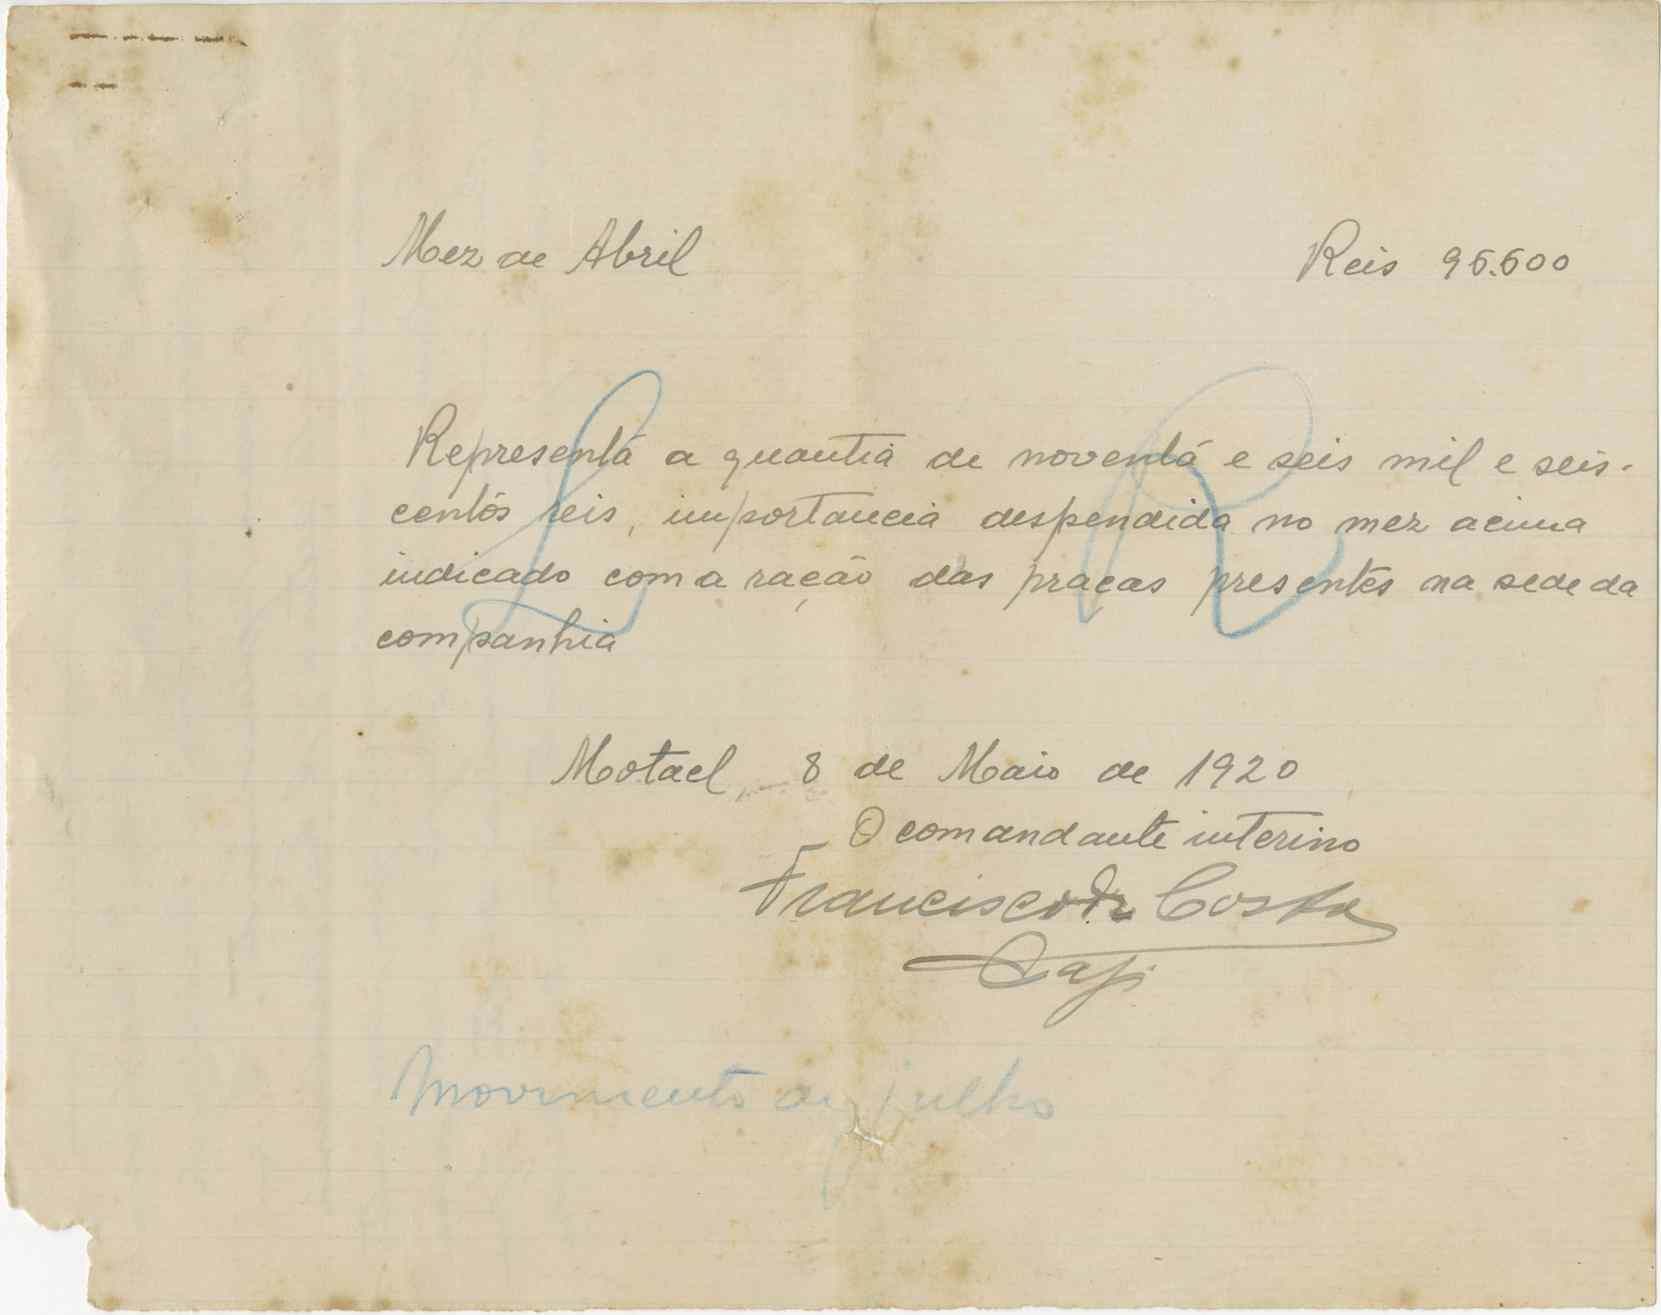 Mez de Abril Reis 96.600
Representa a quantia de noventa e seis mil e seis-
centos reis, importancia despendida no mez acima
indicado com a ração das praças presentes na sede da
companhia
Motael, 8 de Maio de 1920
O comandante interino
Francisco da Costa
Movimento de julho